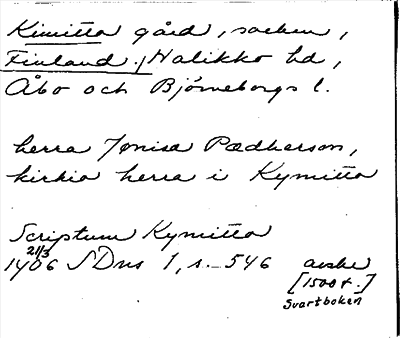 Kimitto gård, socken,
Finland, Halikko hd,
Åbo och Björneborgs l.
herra Jønisa Pædherson,
kirkio herra i Kymitto
Scriptum Kymitto
21/3
1406 SDns 1, s. 546 avskr
[1500 t.]
Svartboken